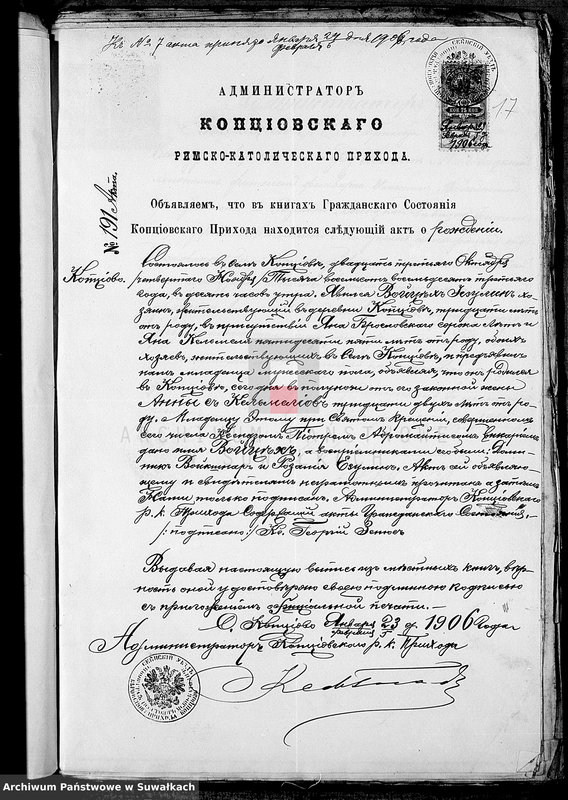 Къ № 7 акта принято Января 24 дня 1906 года
Февраля 6
17
АДМИНИСТРАТОРЪ
КОПЦІОВСКАГО
РИМСКО-КАТОЛИЧЕСКАГО ПРИХОДА.
Января 23
1906 года
№ 191 Акта.
Объявляемъ, что въ книгахъ Гражданскаго Состоянія
Копціовскаго Прихода находится слѣдующій актъ о рожденіи.
Копціово.
Состоялось въ Селѣ Копціовѣ, двадцать третьяго Октября
четвертаго Ноября / Тысяча восемьсотъ восемьдесятъ третьяго
года, въ десять часовъ утра. Явился Войцѣхъ хо-
зяинъ, жительствующій въ деревни Копціовѣ, тридцати лѣтъ
отъ роду, въ присутствіи Яна сорока лѣтъ и
Яна пятидесяти пяти лѣтъ отъ роду, обоихъ
хозяевъ, жительствующихъ въ Селѣ Копціовѣ, и предъявилъ
намъ младенца мужескаго пола, объявляя, что онъ родился
въ Копціовѣ, сего дня въ полуночи отъ его законной жены
Анны съ тридцати двухъ лѣтъ отъ ро-
ду. Младенцу этому при Святомъ Крещеніи, совершенномъ
сего числа Ксендзомъ Петромъ Викаріемъ
дано имя Войцѣхъ, а воспріемниками его были: Доми-
никъ и Розалія Актъ сей объявляю-
щему и свидѣтелямъ неграмотнымъ прочитанъ а затѣмъ
Нами только подписанъ. Администраторъ Копціовскаго
р. к. Прихода Содержащій акты Гражданскаго Состоянія.
/: подписано:/ Кс. Георгій
Выдавая настоящую выпись изъ мѣстныхъ книгъ, вѣр-
ность оной удостовѣряю своею подлинною подписью
съ приложеніемъ офиціальной печати.
С. Копціово Января 23 д. 1906 года
Февраля 5
Администраторъ Копціовскаго р. к. Прихода
Archiwum Państwowe w Suwałkach